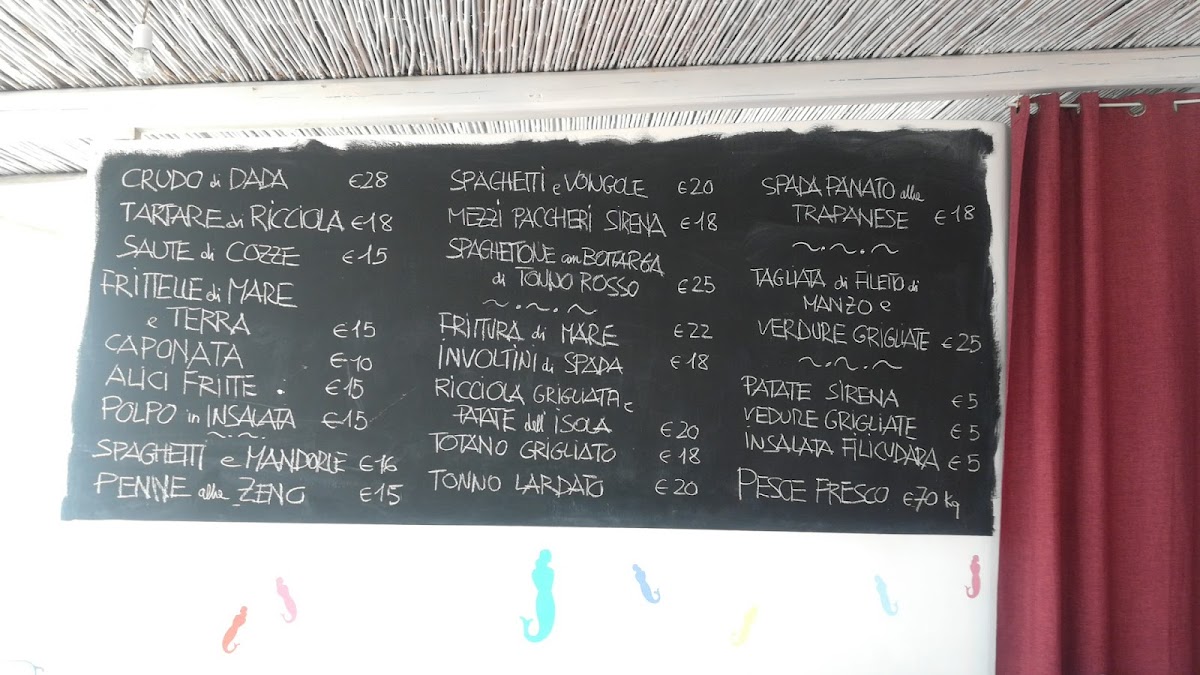 CRUDO di DADA €28
TARTARE di RICCIOLA €18
SAUTE di COZZE €15
FRITTELLE di MARE
e TERRA €15
CAPONATA €10
ALICI FRITTE €15
POLPO in INSALATA €15
SPAGHETTI e MANDORLE €16
PENNE alla ZENO €15
SPAGHETTI e VONGOLE €20
MEZZI PACCHERI SIRENA €18
SPAGHETTONE con BOTTARGA
di TONNO ROSSO €25
FRITTURA di MARE €22
INVOLTINI di SPADA €18
RICCIOLA GRIGLIATA e
PATATE dell'ISOLA €20
TOTANO GRIGLIATO €18
TONNO LARDATO €20
SPADA PANATO alla
TRAPANESE €18
TAGLIATA di FILETTO di
MANZO e
VERDURE GRIGLIATE €25
PATATE SIRENA €5
VEDURE GRIGLIATE €5
INSALATA FILICUDARA €5
PESCE FRESCO €70 kg